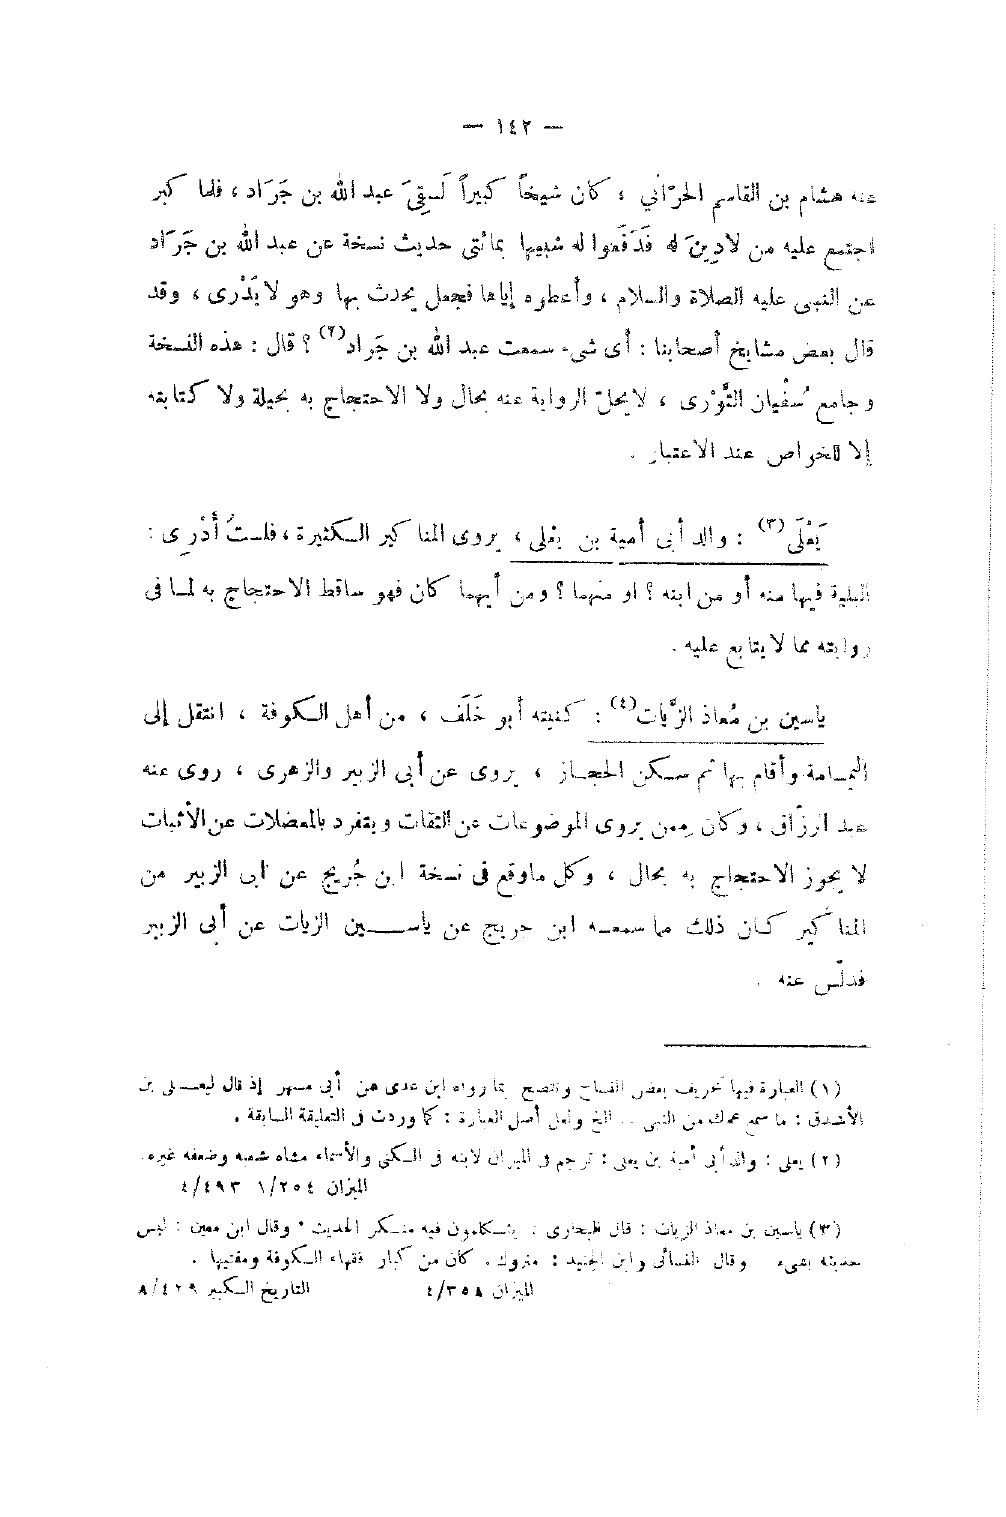 — ١٤٢ —
عنه هشام بن القاسم الحرّاني ، كان شيخاً كبيراً لَـقِىَ عبد الله بن جَرَاد ، فلما كبر
اجتمع عليه من لادِينَ له فَدَفَعُوا له شبيها بمائتى حديث نسخة عن عبد الله بن جَرَاد
عن النبى عليه الصلاة والسلام ، وأعطوه إياها فجعل يحدث بها وهو لا يَدْرى ، وقد
قال بعض مشايخ أصحابنا : أى شىء سمعت عبد الله بن جَراد(٢) ؟ قال : هذه النسخة
وجامع سُفْيان الثَّوْرى ، لا يحلّ الرواية عنه بحال ولا الاحتجاج به بحيلة ولا كتابته
إلا للخواص عند الاعتبار .
يَعْلَى(٣) : والد أبى أمية بن يعلى ، يروى المناكير الـكثيرة ، فلستُ أدْرِى :
البلية فيها منه أو من ابنه ؟ او منهما ؟ ومن أيهما كان فهو ساقط الاحتجاج به لمـا فى
روايته مما لا يتابع عليه .
ياسين بن مُعاذ الزَّيات(٤) : كنيته أبو خَلَف ، من أهل الـكوفة ، انتقل إلى
اليمـامة وأقام بها ثم سـكن الحجـاز ، يروى عن أبى الزبير والزهرى ، روى عنه
عبد الرزّاق ، وكان مِمن يروى الموضوعات عن الثقات ويتفرد بالمعضلات عن الأثبات
لا يجوز الاحتجاج به بحال ، وكل ماوقع فى نسخة ابن جُريج عن ابى الزبير من
المناكير كـان ذلك مما سمعـه ابن جريج عن ياســين الزيات عن أبى الزبير
فدلّس عنه .
(١) العبارة فيها تحريف بعض النساخ وتتضح بما رواه ابن عدى عن أبى مسهر إذ قال ليعـلى بن
الأشدق : ما سمع عمك من النبى .. الخ ولعل أصل العبارة : كما وردت فى التعليقة السابقة .
(٢) يعلى : والد أبى أمية بن يعلى : ترجم فى الميزان لابنه فى الـكنى والأسماء مشاه شعبه وضعفه غيره.
الميزان ١/٢٥٤ ٤/٤٩٣
(٣) ياسين بن معاذ الزيات : قال البخارى : يتـكلمون فيه منـكر الحديث ، وقال ابن معين : ليس
حديثه بشىء وقال النسائى وابن الجنيد : متروك . كان من كبار فقهاء الـكوفة ومفتيها .
الميزان ٤/٣٥٨ التاريخ الـكبير ٨/٤٢٩